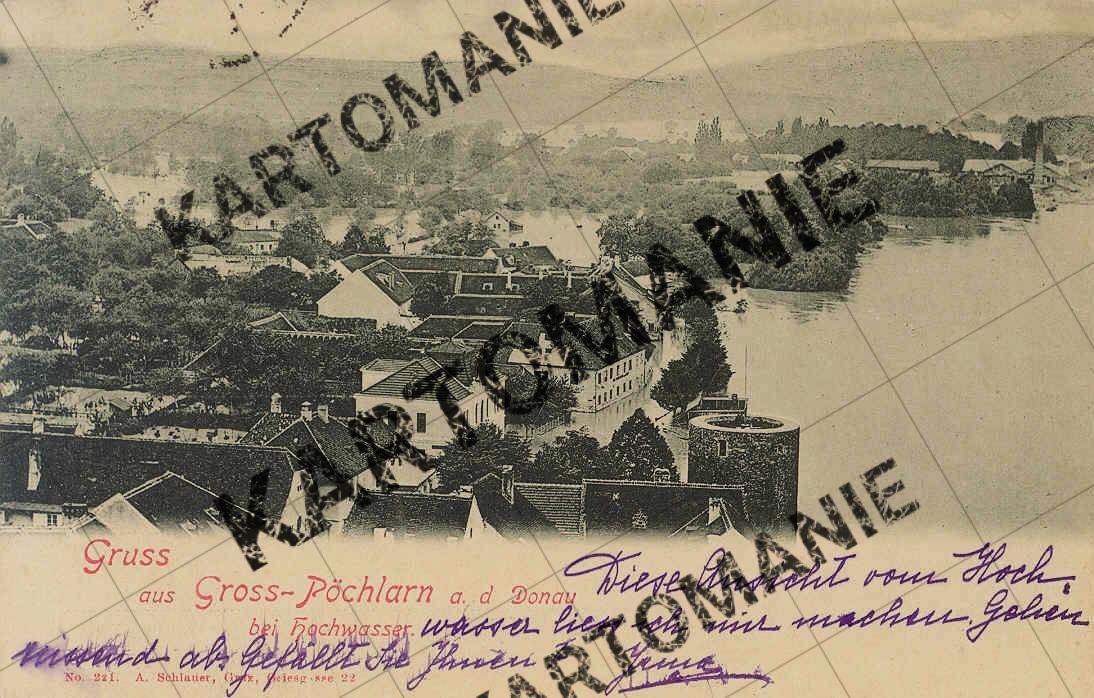 KARTOMANIE
KARTOMANIE
KARTOMANIE
KARTOMANIE
Gruss
aus Gross-Pöchlarn a. d Donau
bei Hochwasser.
Diese Ansicht vom Hoch-
wasser liess ich mir machen. Gehen
als Gefällt Sie Ihnen?
No. 221. A. Schlauer, Graz, Griesgasse 22